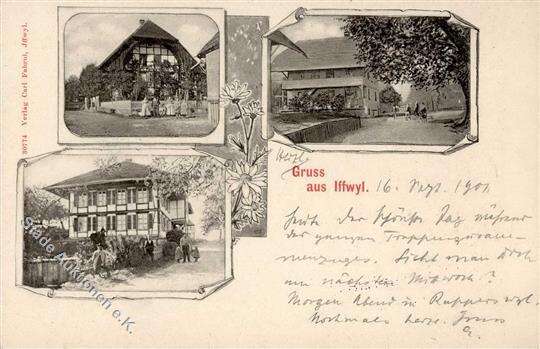 30774 Verlag Carl Fahrni, Jffwyl.
Gruss
aus Iffwyl. 16. Sept. 1901
heute der schönste Tag während
der ganzen Truppenzusam-
menzuges. Sieht man Dich
am nächsten Mittwoch?
Morgen Abend in Rupperswyl.
Nochmals herzl. Gruss
Städte Auktionen e.K.